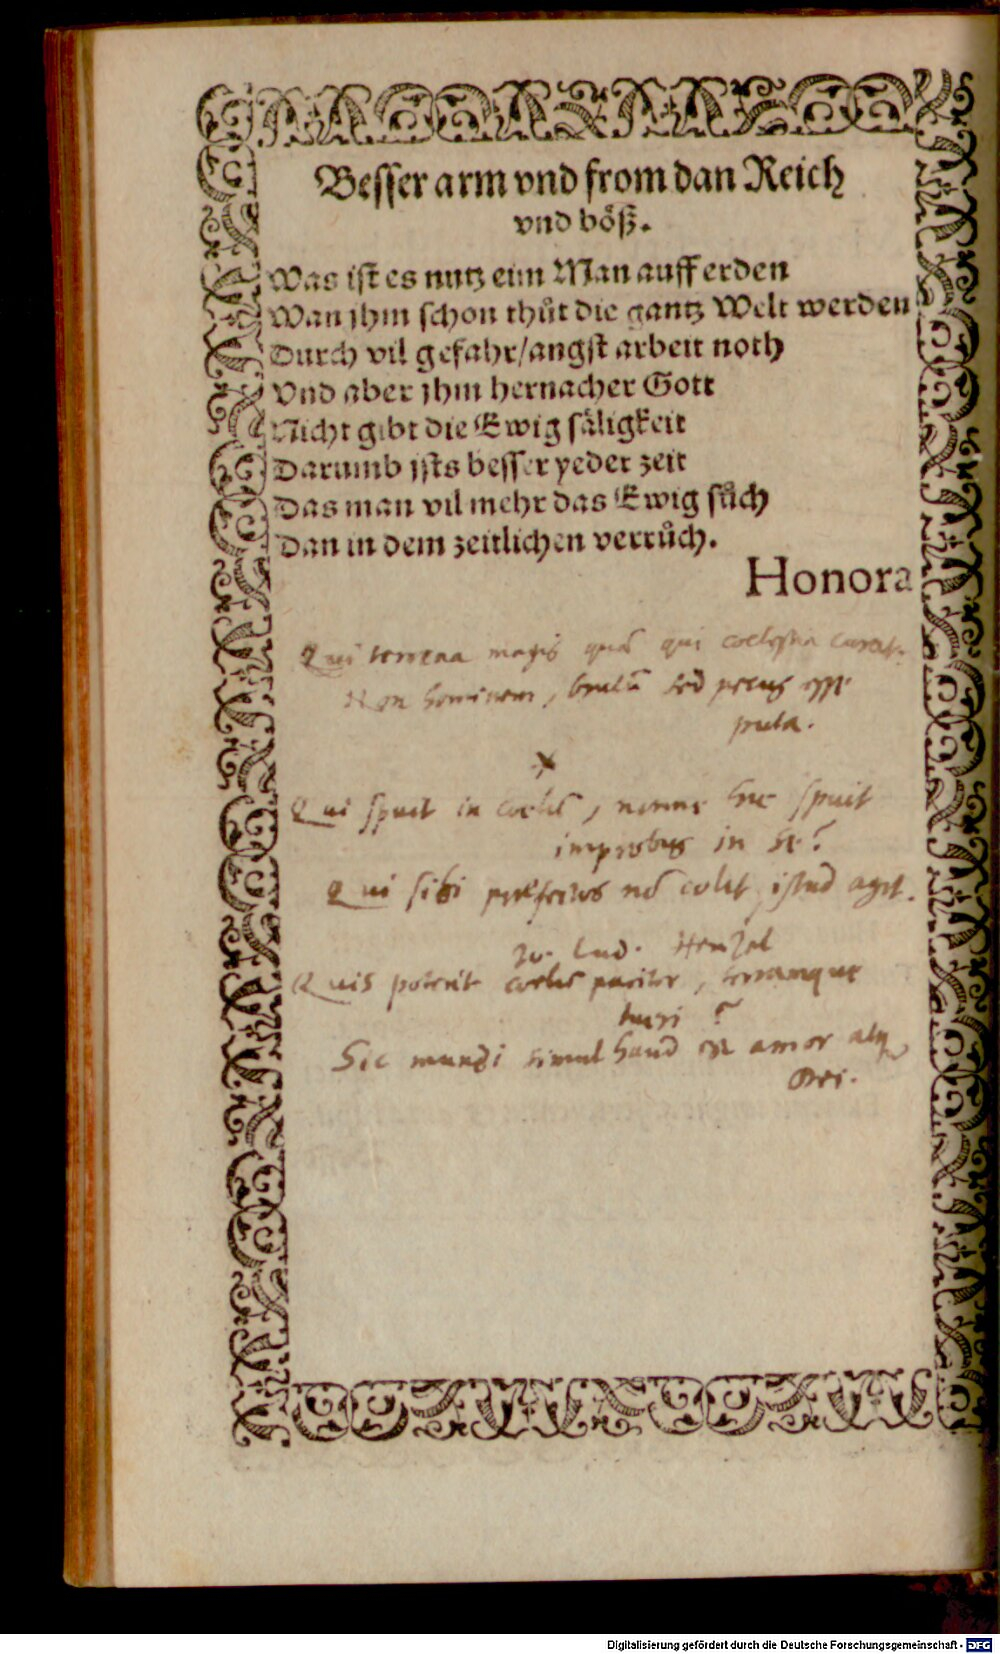 Besser arm vnd from dan Reich
vnd böß.
Was ist es nutz eim Man auff erden
Wan jhm schon thůt die gantz Welt werden
Durch vil gefahr/angst arbeit noth
Vnd aber jhm hernacher Gott
Nicht gibt die Ewig säligkeit
Darumb jsts besser yeder zeit
Das man vil mehr das Ewig sůch
Dan in dem zeitlichen verrůch.
Honora
Qui terrena magis quā qui coelestia curat.
Non hominem, brutū sed pecus esse
puta.
Qui spuit in coelū, nonne hic spuit
improbus in se?
Qui sibi praefectos nō colit, istud agit.
Jo. Lud. Henzel
Quis poterit coelū pariter, terramque
tueri?
Sic mundi simul haud est amor atq
Dei.
Digitalisierung gefördert durch die Deutsche Forschungsgemeinschaft - DFG